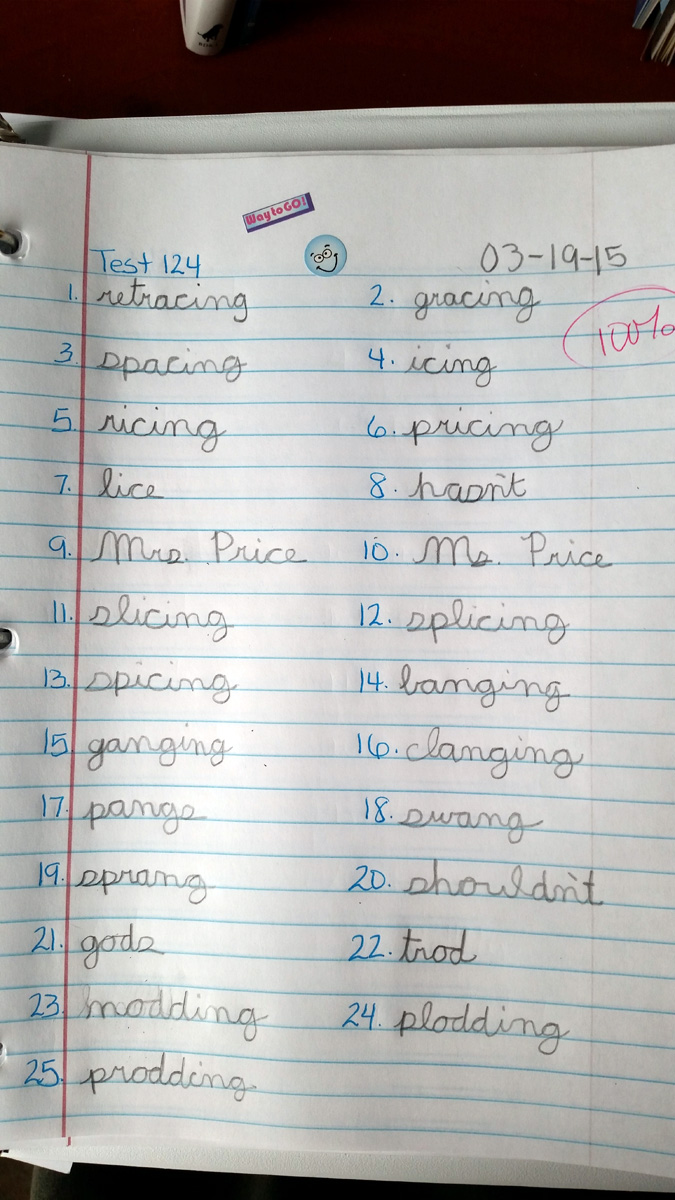 Way to GO!
Test 124 03-19-15
1. retracing 2. gracing
100%
3. spacing 4. icing
5. ricing 6. pricing
7. lice 8. hasn't
9. Mrs. Price 10. Ms. Price
11. slicing 12. splicing
13. spicing 14. banging
15. ganging 16. clanging
17. pangs 18. swang
19. sprang 20. shouldn't
21. gods 22. trod
23. modding 24. plodding
25. prodding